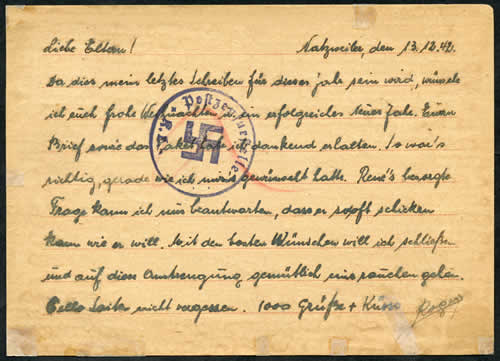 Liebe Eltern! Natzweiler, den 13.12.42.
Da dies mein letztes Schreiben für dieses Jahr sein wird, wünsche
ich euch frohe Weihnachten u. ein erfolgreiches Neues Jahr. Euren
Brief sowie das Paket habe ich dankend erhalten. So war's
richtig, gerade wie ich mir's gewünscht hatte. René's besorgte
Frage kann ich nur beantworten, dass er so oft schicken
kann wie er will. Mit den besten Wünschen will ich schließen
und auf diese Anstrengung gemütlich eins rauchen gehen.
nicht vergessen. 1000 Grüße + Küsse Roger